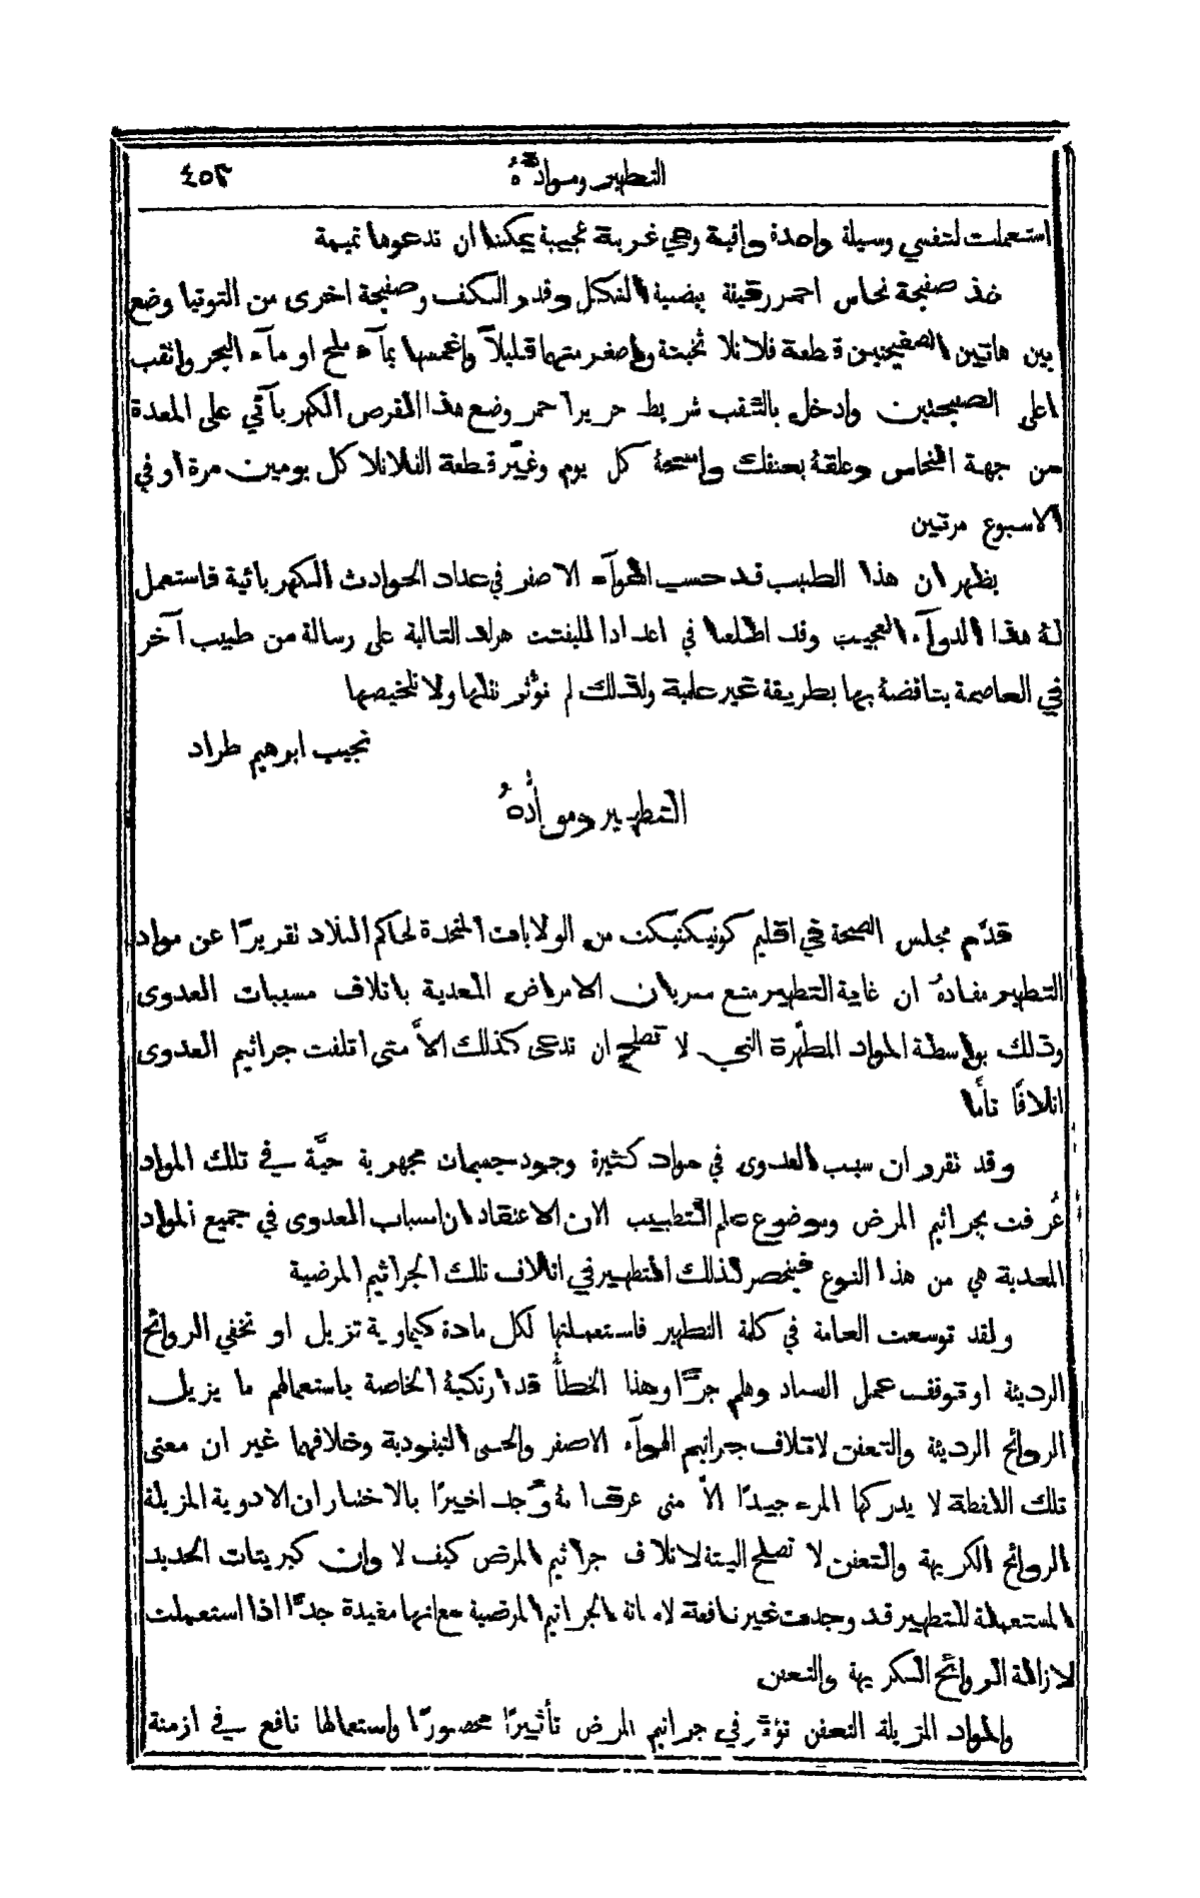 التطهير وموادّهُ ٤٥٣
استعملت لنفسي وسيلة واحدة واقية وهي غريبة عجيبة يمكننا ان ندعوها تميمة
خذ صفيحة نحاس احمر رقيقة بيضية الشكل وقدر الكف وصفيحة اخرى من التوتيا وضع
بين هاتين الصفيحتين قطعة فلانلا ثخينة واصغر منهما قليلاً واغمسها بمآء ملح او مآء البحر واثقب
اعلى الصفيحتين وادخل بالثقب شريط حرير احمر وضع هذا القرص الكهربآئي على المعدة
من جهة النحاس وعلقهُ بعنقك وامسحهُ كل يوم وغيّر قطعة الفلانلا كل يومين مرة او في
الاسبوع مرتين
يظهر ان هذا الطبيب قد حسب الهوآء الاصفر في عداد الحوادث الكهربائية فاستعمل
لهُ هذا الدوآء العجيب وقد اطلعنا في اعداد المليفنت هرلد التالية على رسالة من طبيب آخر
في العاصمة يناقضهُ بها بطريقة غير علمية ولذلك لم نؤثر نقلها ولا تلخيصها
نجيب ابرهيم طراد
التطهير وموادُّهُ
قدّم مجلس الصحة في اقليم كونيكتيكت من الولايات المتحدة لحاكم البلاد تقريرًا عن مواد
التطهير مفادهُ ان غاية التطهير منع سريان الامراض المعدية باتلاف مسببات العدوى
وذلك بواسطة المواد المطهّرة التي لا تصلح ان تدعى كذلك الاَّ متى اتلفت جراثيم العدوى
اتلافًا تامًّا
وقد تقرر ان سبب العدوى في مواد كثيرة وجود جسيمات مجهرية حيَّة في تلك المواد
عُرفت بجراثيم المرض وموضوع علم التطبيب الان الاعتقاد ان اسباب العدوى في جميع المواد
المعدية هي من هذا النوع فينحصر لذلك التطهير في اتلاف تلك الجراثيم المرضية
ولقد توسعت العامة في كلمة التطهير فاستعملتها لكل مادة كيماوية تزيل او تخفي الروائح
الرديئة او توقف عمل السماد وهلم جرًّا وهذا الخطأُ قد ارتكبهُ الخاصة باستعمالهم ما يزيل
الروائح الرديئة والتعفن لاتلاف جراثيم الهوآء الاصفر والحمى التيفودية وخلافهما غير ان معنى
تلك اللفظة لا يدركها المرء جيدًا الاَّ متى عرف انهُ وُجد اخيرًا بالاختبار ان الادوية المزيلة
الروائح الكريهة والتعفن لا تصلح البتة لاتلاف جراثيم المرض كيف لا وان كبريتات الحديد
المستعملة للتطهير قد وجدت غير نافعة لاماتة الجراثيم المرضية مع انها مفيدة جدًّا اذا استعملت
لازالة الروائح الكريهة والتعفن
والمواد المزيلة التعفن تؤثّر في جراثيم المرض تأثيرًا محصورًا واستعمالها نافع في ازمنة